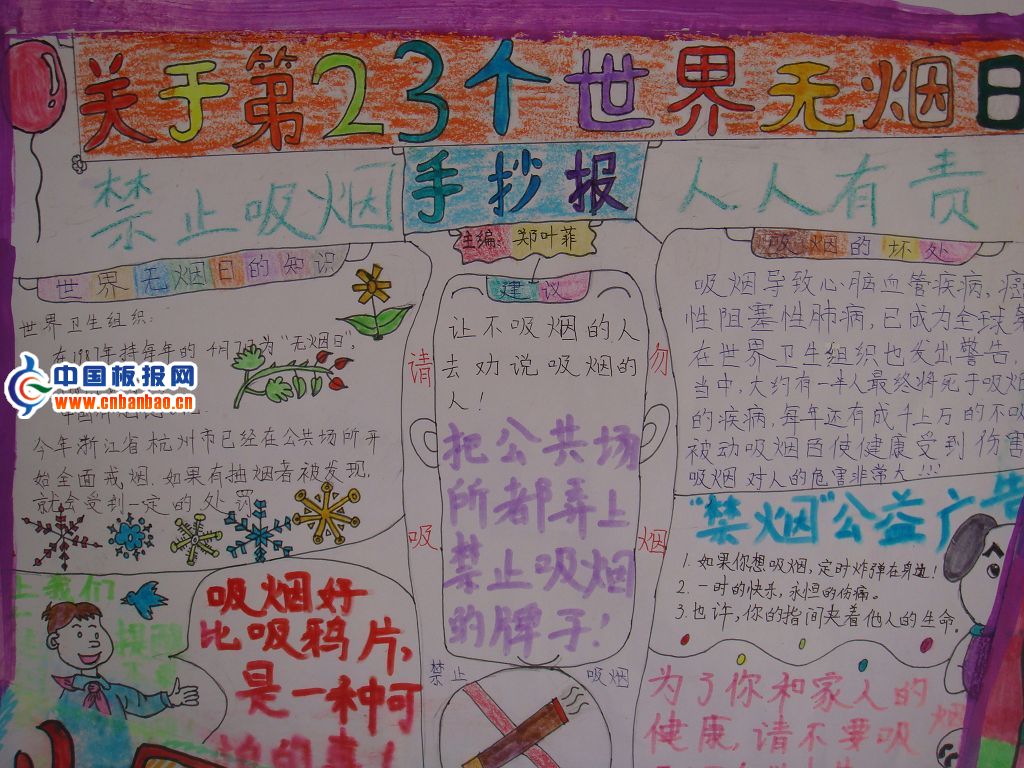 关于第23个世界无烟日
禁止吸烟
手抄报
人人有责
主编:郑叶菲
世界无烟日的知识
世界卫生组织:
在1987年将每年的4月7日为“无烟日”,
中国板报网
www.cnbanbao.cn
今年浙江省杭州市已经在公共场所开
始全面戒烟.如果有抽烟者被发现,
就会受到一定的处罚
建议
让不吸烟的人
去劝说吸烟的
人!
把公共场
所都弄上
禁止吸烟
的牌子!
请
勿
吸
烟
吸烟的坏处
吸烟导致心、脑血管疾病、癌
性阻塞性肺病,已成为全球
在世界卫生组织也发出警告,
当中,大约有一半人最终将死于吸
的疾病,每年还有成千上万的不
被动吸烟而使健康受到伤害
吸烟对人的危害非常大!!!
“禁烟”公益广告
1.如果你想吸烟,定时炸弹在身边!
2.一时的快乐,永恒的伤痛。
3.也许,你的指间夹着他人的生命。
我们
吸烟好
比吸鸦片,
是一种可
怕的事!
禁止
吸烟
为了你和家人的
健康,请不要吸
烟